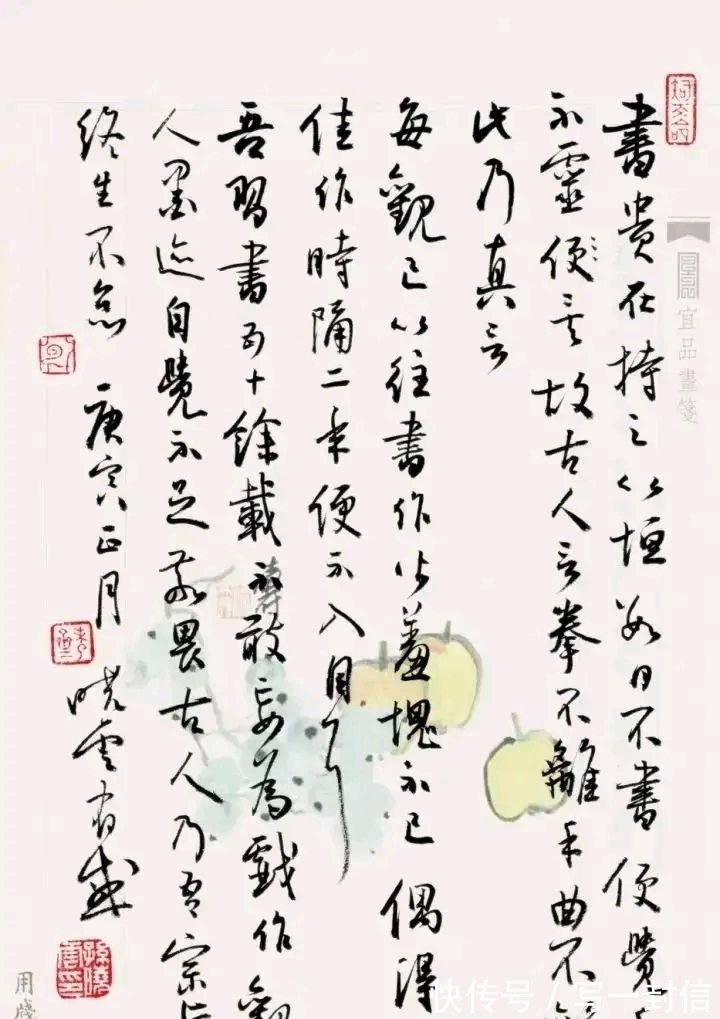 書貴在持之以恒数日不書便覺
不靈便矣故古人言拳不離手曲不
此乃真言
每觀已以往書作必羞愧不已偶得
佳作時隔二年便不入目了
吾習書五十餘載不敢妄為戲作觀
人墨迹自覺不足敬畏古人乃吾宗
終生不怠 庚寅正月 曉雲有感
宜品畫箋
用牋
快传号 / 写一封信